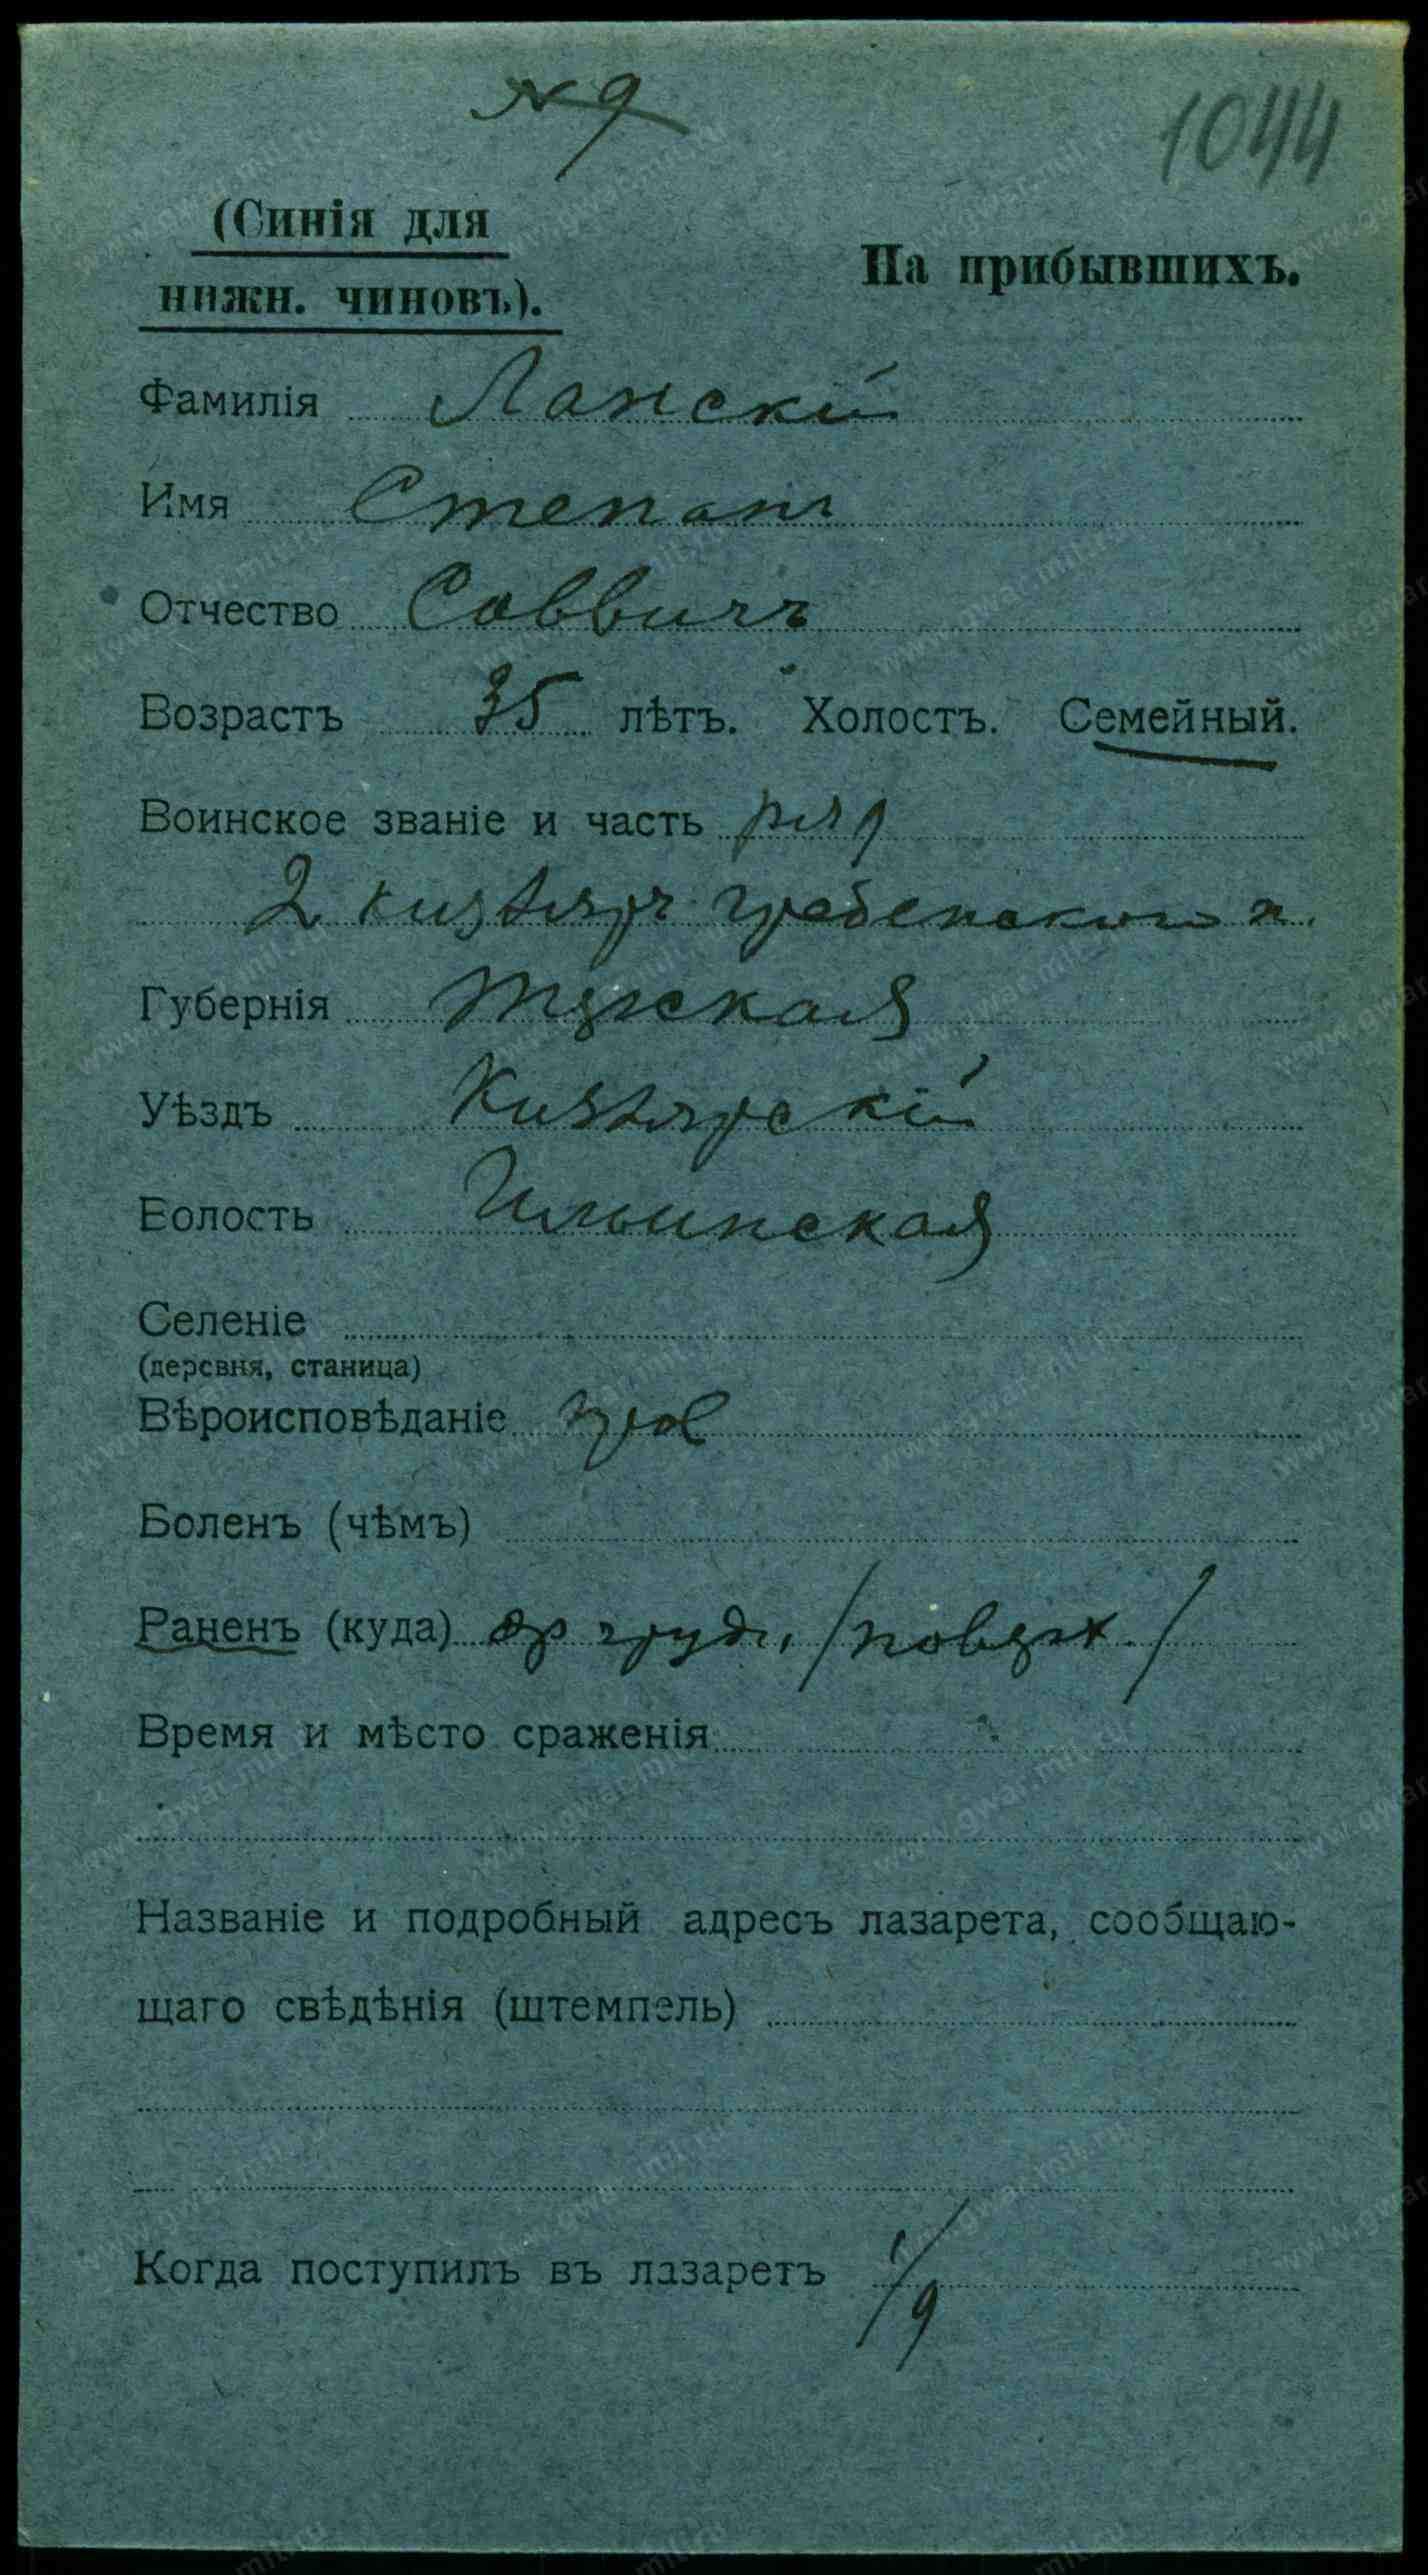 № 9
1044
(Синія для
нижн. чиновъ).
На прибывшихъ.
Фамилія Ланскій
Имя Степанъ
Отчество Саввичъ
Возрастъ 35 лѣтъ. Холостъ. Семейный.
Воинское званіе и часть ряд
2 Кизляр гребенского п.
Губернія Терская
Уѣздъ Кизлярскій
Волость Ильинская
Селеніе
(деревня, станица)
Вѣроисповѣданіе прав
Боленъ (чѣмъ)
Раненъ (куда) груди /поверх./
Время и мѣсто сраженія
Названіе и подробный адресъ лазарета, сообщаю-
щаго свѣдѣнія (штемпель)
Когда поступилъ въ лазаретъ 1/9
www.gwar.mil.ru